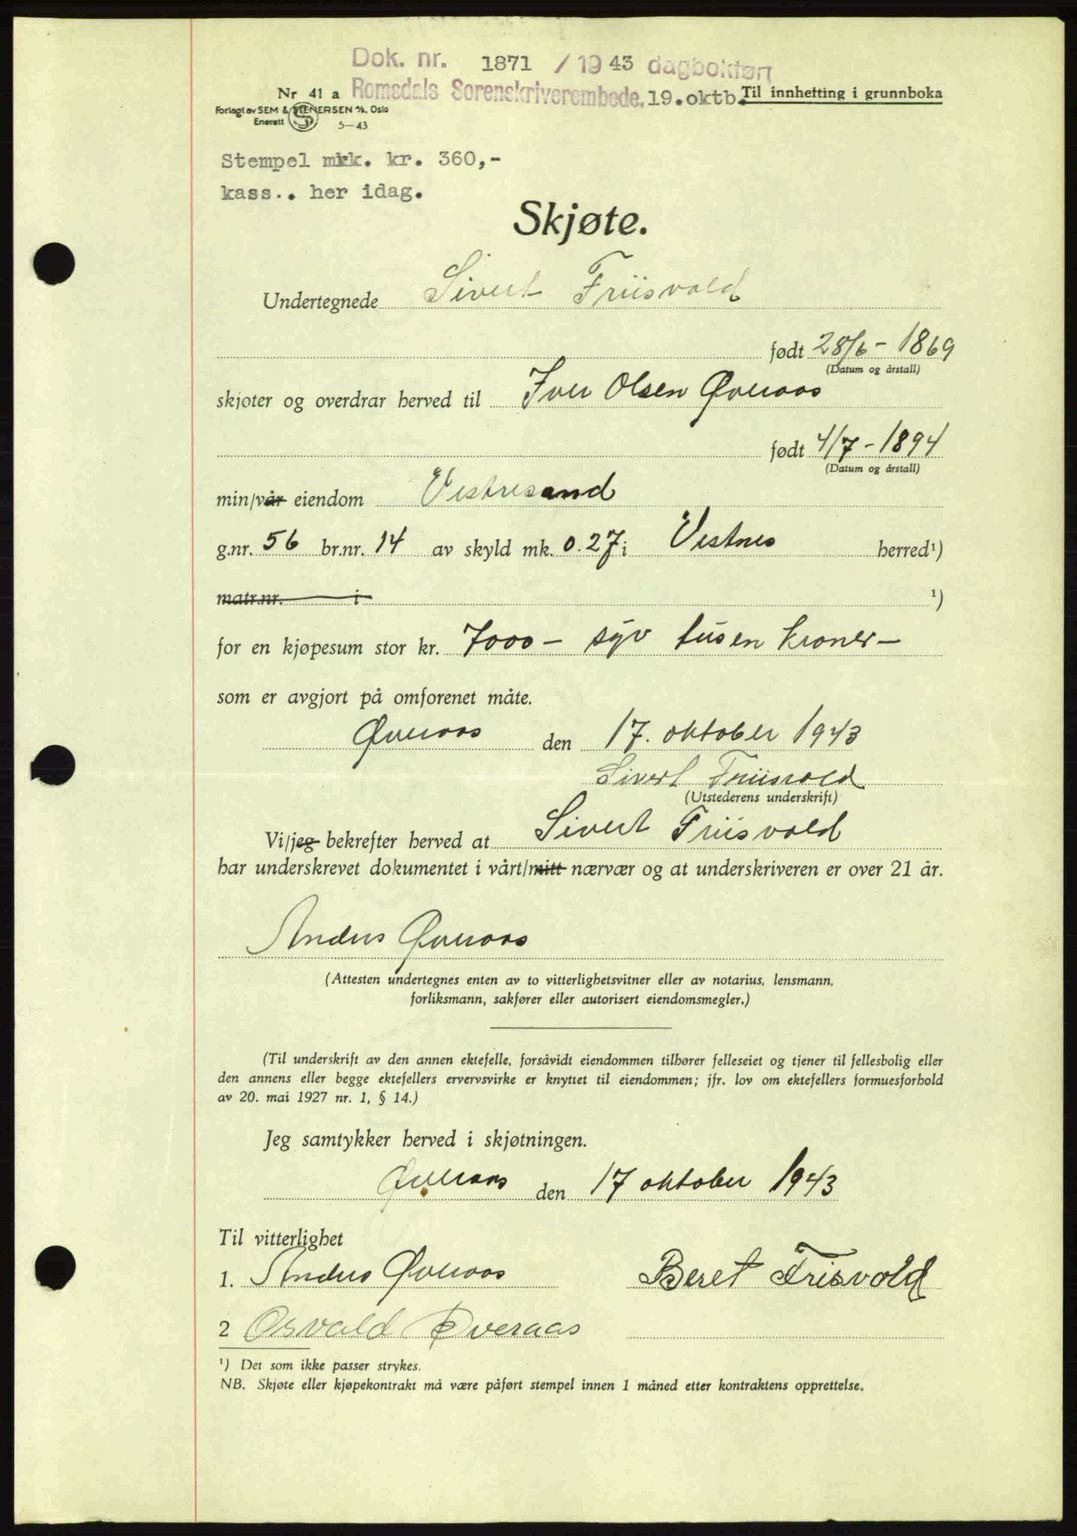 Dok. nr. 1871 / 19 43 dagbokført
Nr 41 a Romsdals Sorenskriverembede. 19. oktb. Til innhefting i grunnboka
Forlagt av SEM & STENERSEN A/S, Oslo
Enerett S 5-43
Stempel mkk. kr. 360,-
kass.. her idag.
Skjøte.
Undertegnede Sivert Friisvold
født 28/6 - 1869
(Datum og årstall)
skjøter og overdrar herved til Iver Olsen Øveraas
født 4/7 - 1894
(Datum og årstall)
min/vår eiendom Vestresand
g.nr. 56 br.nr. 14 av skyld mk. 0.27 i Vestnes herred¹)
matr.nr. i ¹)
for en kjøpesum stor kr. 7000 - syv tusen kroner -
som er avgjort på omforenet måte.
Øveraas den 17. oktober 1943
Sivert Friisvold
(Utstederens underskrift)
Vi/jeg bekrefter herved at Sivert Friisvold
har underskrevet dokumentet i vårt/mitt nærvær og at underskriveren er over 21 år.
Anders Øveraas
(Attesten undertegnes enten av to vitterlighetsvitner eller av notarius, lensmann,
forliksmann, sakfører eller autorisert eiendomsmegler.)
(Til underskrift av den annen ektefelle, forsåvidt eiendommen tilhører felleseiet og tjener til fellesbolig eller
den annens eller begge ektefellers ervervsvirke er knyttet til eiendommen; jfr. lov om ektefellers formuesforhold
av 20. mai 1927 nr. 1, § 14.)
Jeg samtykker herved i skjøtningen.
Øveraas den 17 oktober 1943
Til vitterlighet
1. Anders Øveraas Beret Frisvold
2 Osvald Øveraas
¹) Det som ikke passer strykes.
NB. Skjøte eller kjøpekontrakt må være påført stempel innen 1 måned etter kontraktens opprettelse.